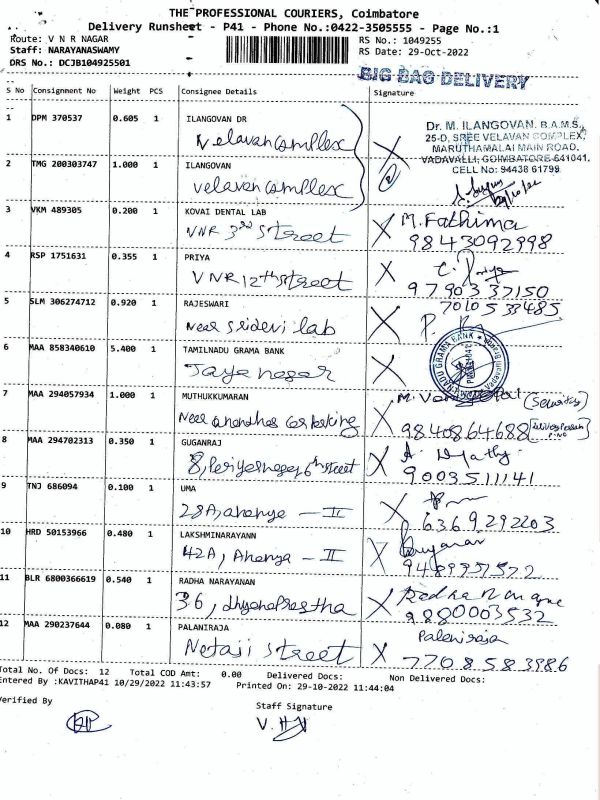 THE PROFESSIONAL COURIERS, Coimbatore
Delivery Runsheet - P41 - Phone No.:0422-3505555 - Page No.:1
Route: V N R NAGAR RS No.: 1049255
Staff: NARAYANASWAMY RS Date: 29-Oct-2022
DRS No.: DCJB104925501
BIG BAG DELIVERY
S No Consignment No Weight PCS Consignee Details Signature
1 DPM 370537 0.605 1 ILANGOVAN DR
Velavan Complex
Dr. M. ILANGOVAN. B.A.M.S.,
25-D, SREE VELAVAN COMPLEX,
MARUTHAMALAI MAIN ROAD,
VADAVALLI, COIMBATORE-641041.
CELL No: 94438 61799
2 TMG 200303747 1.000 1 ILANGOVAN
Velavan Complex
3 VKM 489305 0.200 1 KOVAI DENTAL LAB
VNR 3rd Street
M. Fathima
9843092998
4 RSP 1751631 0.355 1 PRIYA
VNR 12th Street
C. Priya
9790337150
5 SLM 306274712 0.920 1 RAJESWARI
Near Sridevi lab
7010533485
6 MAA 858340610 5.400 1 TAMILNADU GRAMA BANK
Jaya nagar
7 MAA 294057934 1.000 1 MUTHUKKUMARAN
Near anandhas
(Security)
9840864688
8 MAA 294702313 0.350 1 GUGANRAJ
8, Periyar nagar 6th Street
9003511141
9 TNJ 686094 0.100 1 UMA
28A, ananya - II
6369292203
10 HRD 50153966 0.480 1 LAKSHMINARAYANN
42A, Ananya - II
9489951572
11 BLR 6800366619 0.540 1 RADHA NARAYANAN
36, Dhyanaprastha
9880003532
12 MAA 290237644 0.080 1 PALANIRAJA
Netaji Street
Palaniraja
7708583986
Total No. Of Docs: 12 Total COD Amt: 0.00 Delivered Docs: Non Delivered Docs:
Entered By :KAVITHAP41 10/29/2022 11:43:57 Printed On: 29-10-2022 11:44:04
Verified By Staff Signature